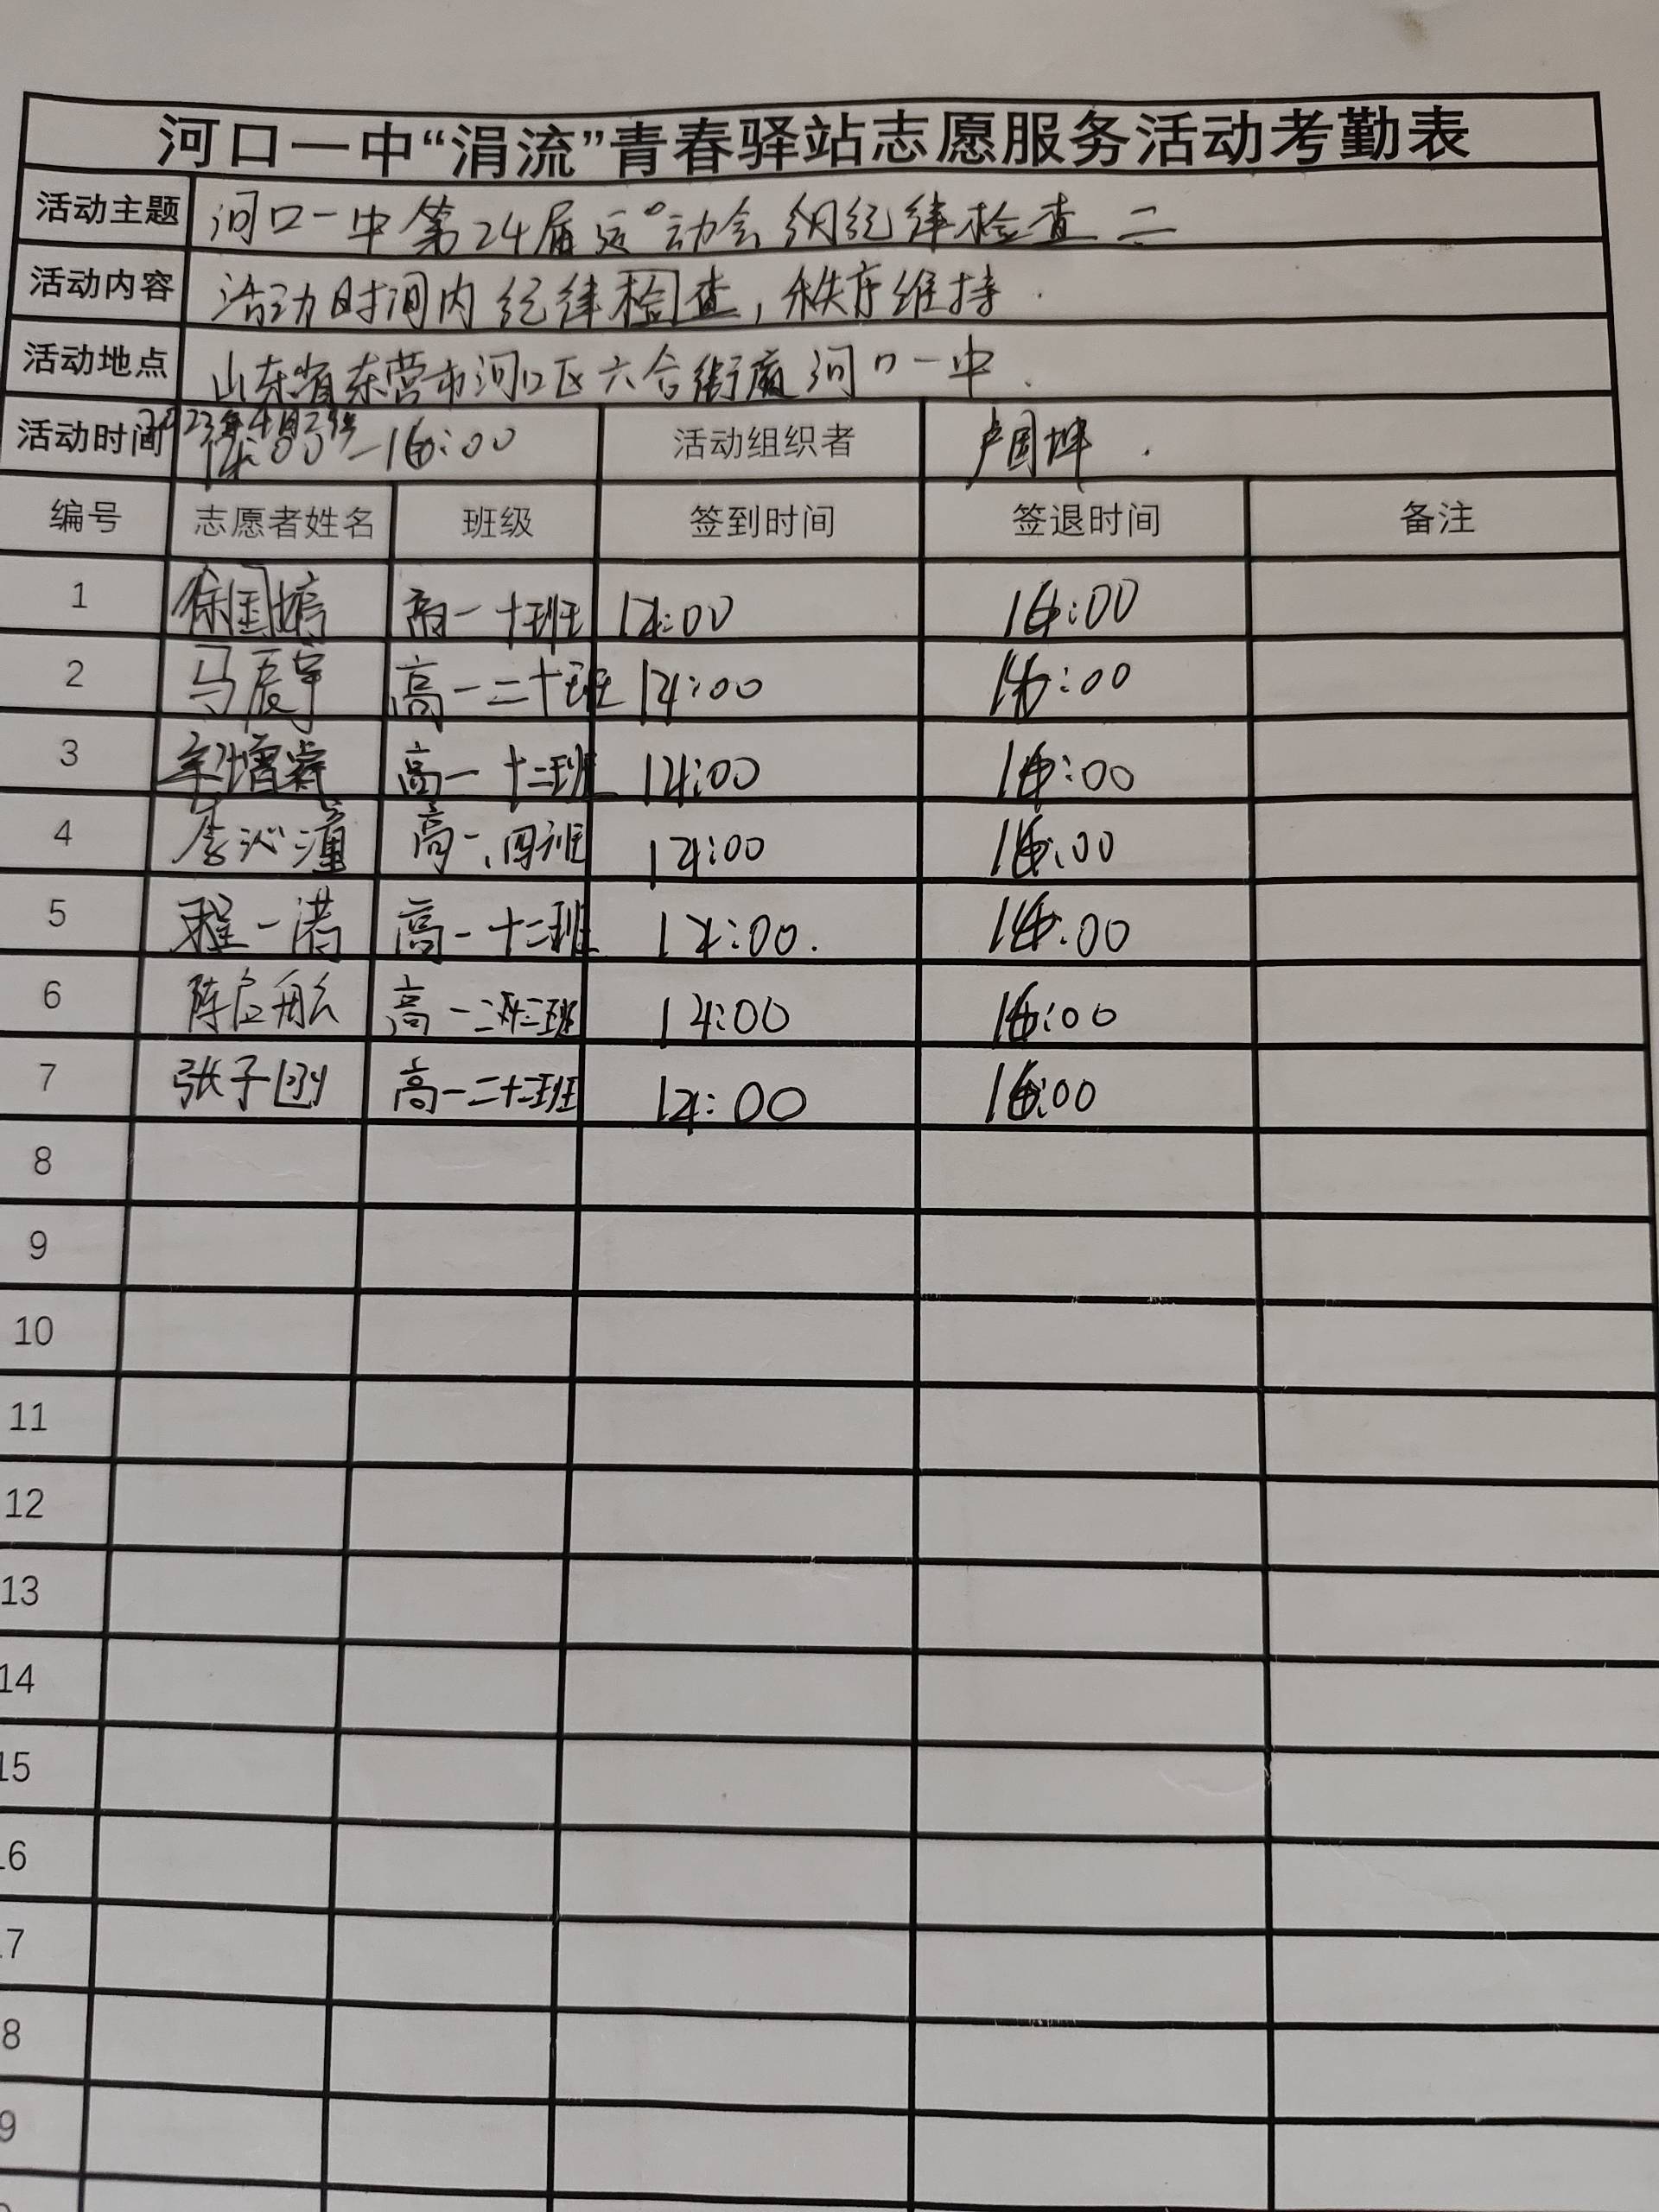 河口一中“涓流”青春驿站志愿服务活动考勤表
活动主题 河口一中第24届运动会 纪律检查二
活动内容 活动时间内纪律检查，秩序维持.
活动地点 山东省东营市河口区六合街道河口一中.
活动时间 2023年4月 -16:00 活动组织者 卢国坤.
编号 志愿者姓名 班级 签到时间 签退时间 备注
1 徐国婷 高一十班 16:00
2 马晨宇 高一二十班 14:00 16:00
3 高一十二班 14:00 16:00
4 李沁潼 高一.四班 14:00 16:00
5 程一诺 高一十二班 14:00. 16:00
6 陈启航 高一 14:00 16:00
7 张子 高一二十二班 14:00 16:00
8
9
10
11
12
13
14
15
16
17
8
9